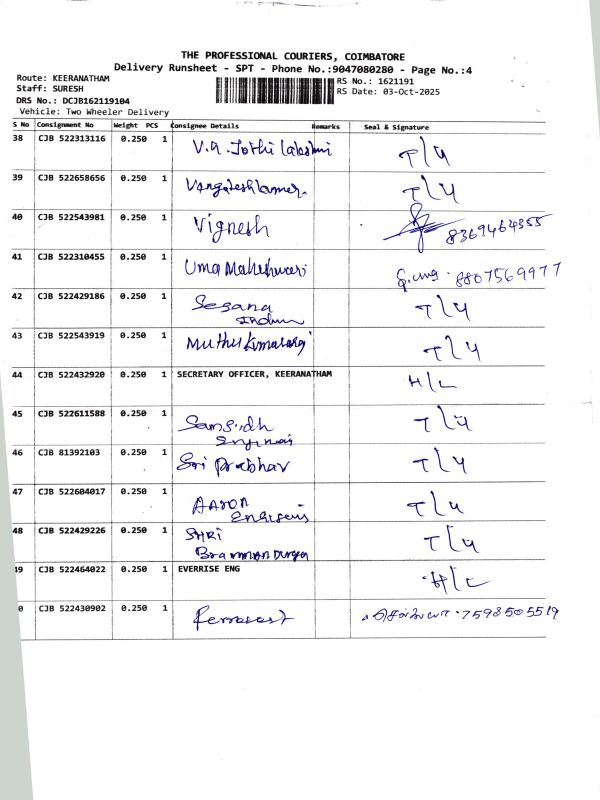 THE PROFESSIONAL COURIERS, COIMBATORE
Delivery Runsheet - SPT - Phone No.:9047080280 - Page No.:4
Route: KEERANATHAM
RS No.: 1621191
Staff: SURESH
RS Date: 03-Oct-2025
DRS No.: DCJB162119104
Vehicle: Two Wheeler Delivery
S No Consignment No Weight PCS Consignee Details Remarks Seal & Signature
38 CJB 522313116 0.250 1 V.A. Jothi Lakshmi T/4
39 CJB 522658656 0.250 1 T/4
40 CJB 522543981 0.250 1 Vignesh 8369464355
41 CJB 522310455 0.250 1 Uma Maheshwari 8807569977
42 CJB 522429186 0.250 1 T/4
43 CJB 522543919 0.250 1 T/4
44 CJB 522432920 0.250 1 SECRETARY OFFICER, KEERANATHAM H/L
45 CJB 522611588 0.250 1 T/4
46 CJB 81392103 0.250 1 Sri Prabhav T/4
47 CJB 522604017 0.250 1 AARON T/4
48 CJB 522429226 0.250 1 SHRI T/4
49 CJB 522464022 0.250 1 EVERRISE ENG H/L
0 CJB 522430902 0.250 1 7598505519